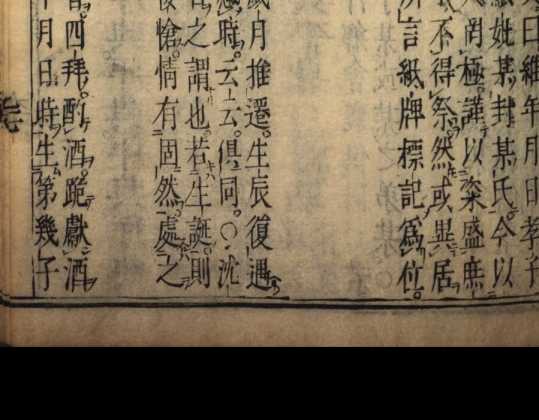 曰維年月日孝子
妣某封某氏今以
罔極謹以粢盛庶
不得祭然或異居
言紙牌標記爲位
歲月推遷生辰復遇
時云云俱同○沈
之謂也若生誕則
愴情有固然處之
四拜酌酒跪獻酒
年月日時生第幾子